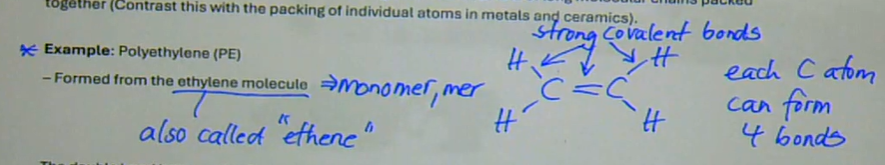 together (Contrast this with the packing of individual atoms in metals and ceramics).
strong covalent bonds
* Example: Polyethylene (PE)
– Formed from the ethylene molecule ⇒ monomer, mer
also called "ethene"
H H
C=C
H H
each C atom
can form
4 bonds